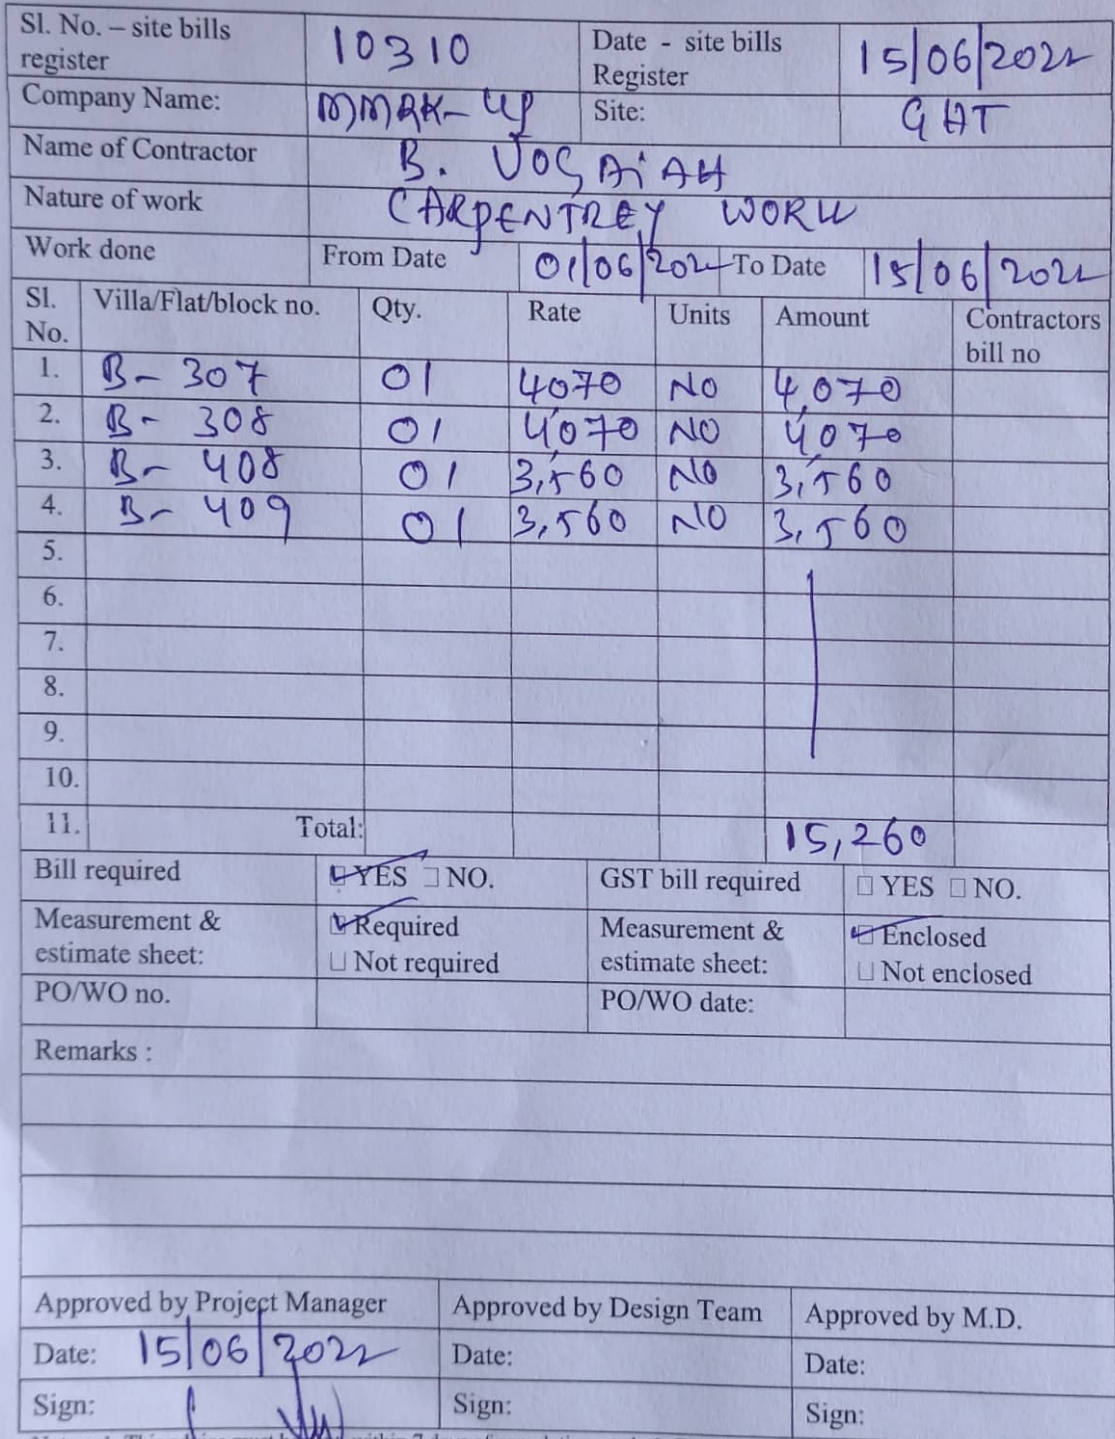 Sl. No. – site bills register 10310 Date - site bills Register 15/06/2022
Company Name: MMRK-UP Site: GHT
Name of Contractor B. VOSAiAH
Nature of work CARPENTREY WORK
Work done From Date 01/06/202 To Date 15/06/2022
Sl. No. Villa/Flat/block no. Qty. Rate Units Amount Contractors bill no
1. B- 307 01 4070 NO 4,070
2. B- 308 01 4,070 NO 4,070
3. B- 408 01 3,560 NO 3,560
4. B- 409 01 3,560 NO 3,560
5.
6.
7.
8.
9.
10.
11. Total: 15,260
Bill required YES NO. GST bill required YES NO.
Measurement & estimate sheet: Required Not required Measurement & estimate sheet: Enclosed Not enclosed
PO/WO no. PO/WO date:
Remarks :
Approved by Project Manager Approved by Design Team Approved by M.D.
Date: 15/06/2022 Date: Date:
Sign: Sign: Sign: